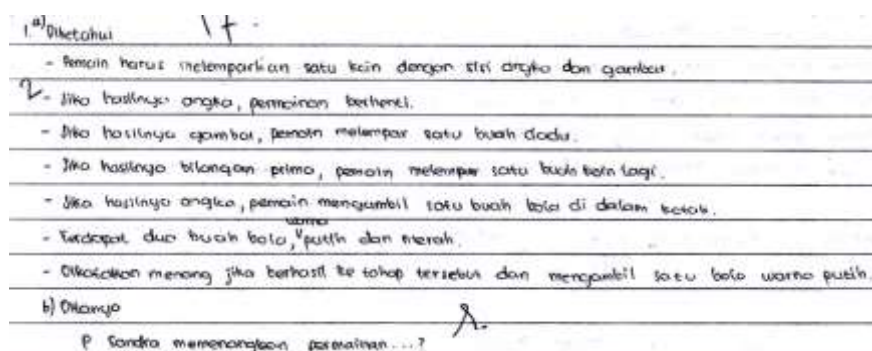 1. a) Diketahui
- Pemain harus melemparkan satu koin dengan sisi angka dan gambar.
- Jika hasilnya angka, permainan berhenti.
- Jika hasilnya gambar, pemain melempar satu buah dadu.
- Jika hasilnya bilangan prima, pemain melempar satu buah koin lagi.
- Jika hasilnya angka, pemain mengambil satu buah bola di dalam kotak.
- Terdapat dua buah bola, warna putih dan merah.
- Dikatakan menang jika berhasil ke tahap tersebut dan mengambil satu bola warna putih.
b) Ditanya
P Sandra memenangkan permainan...?